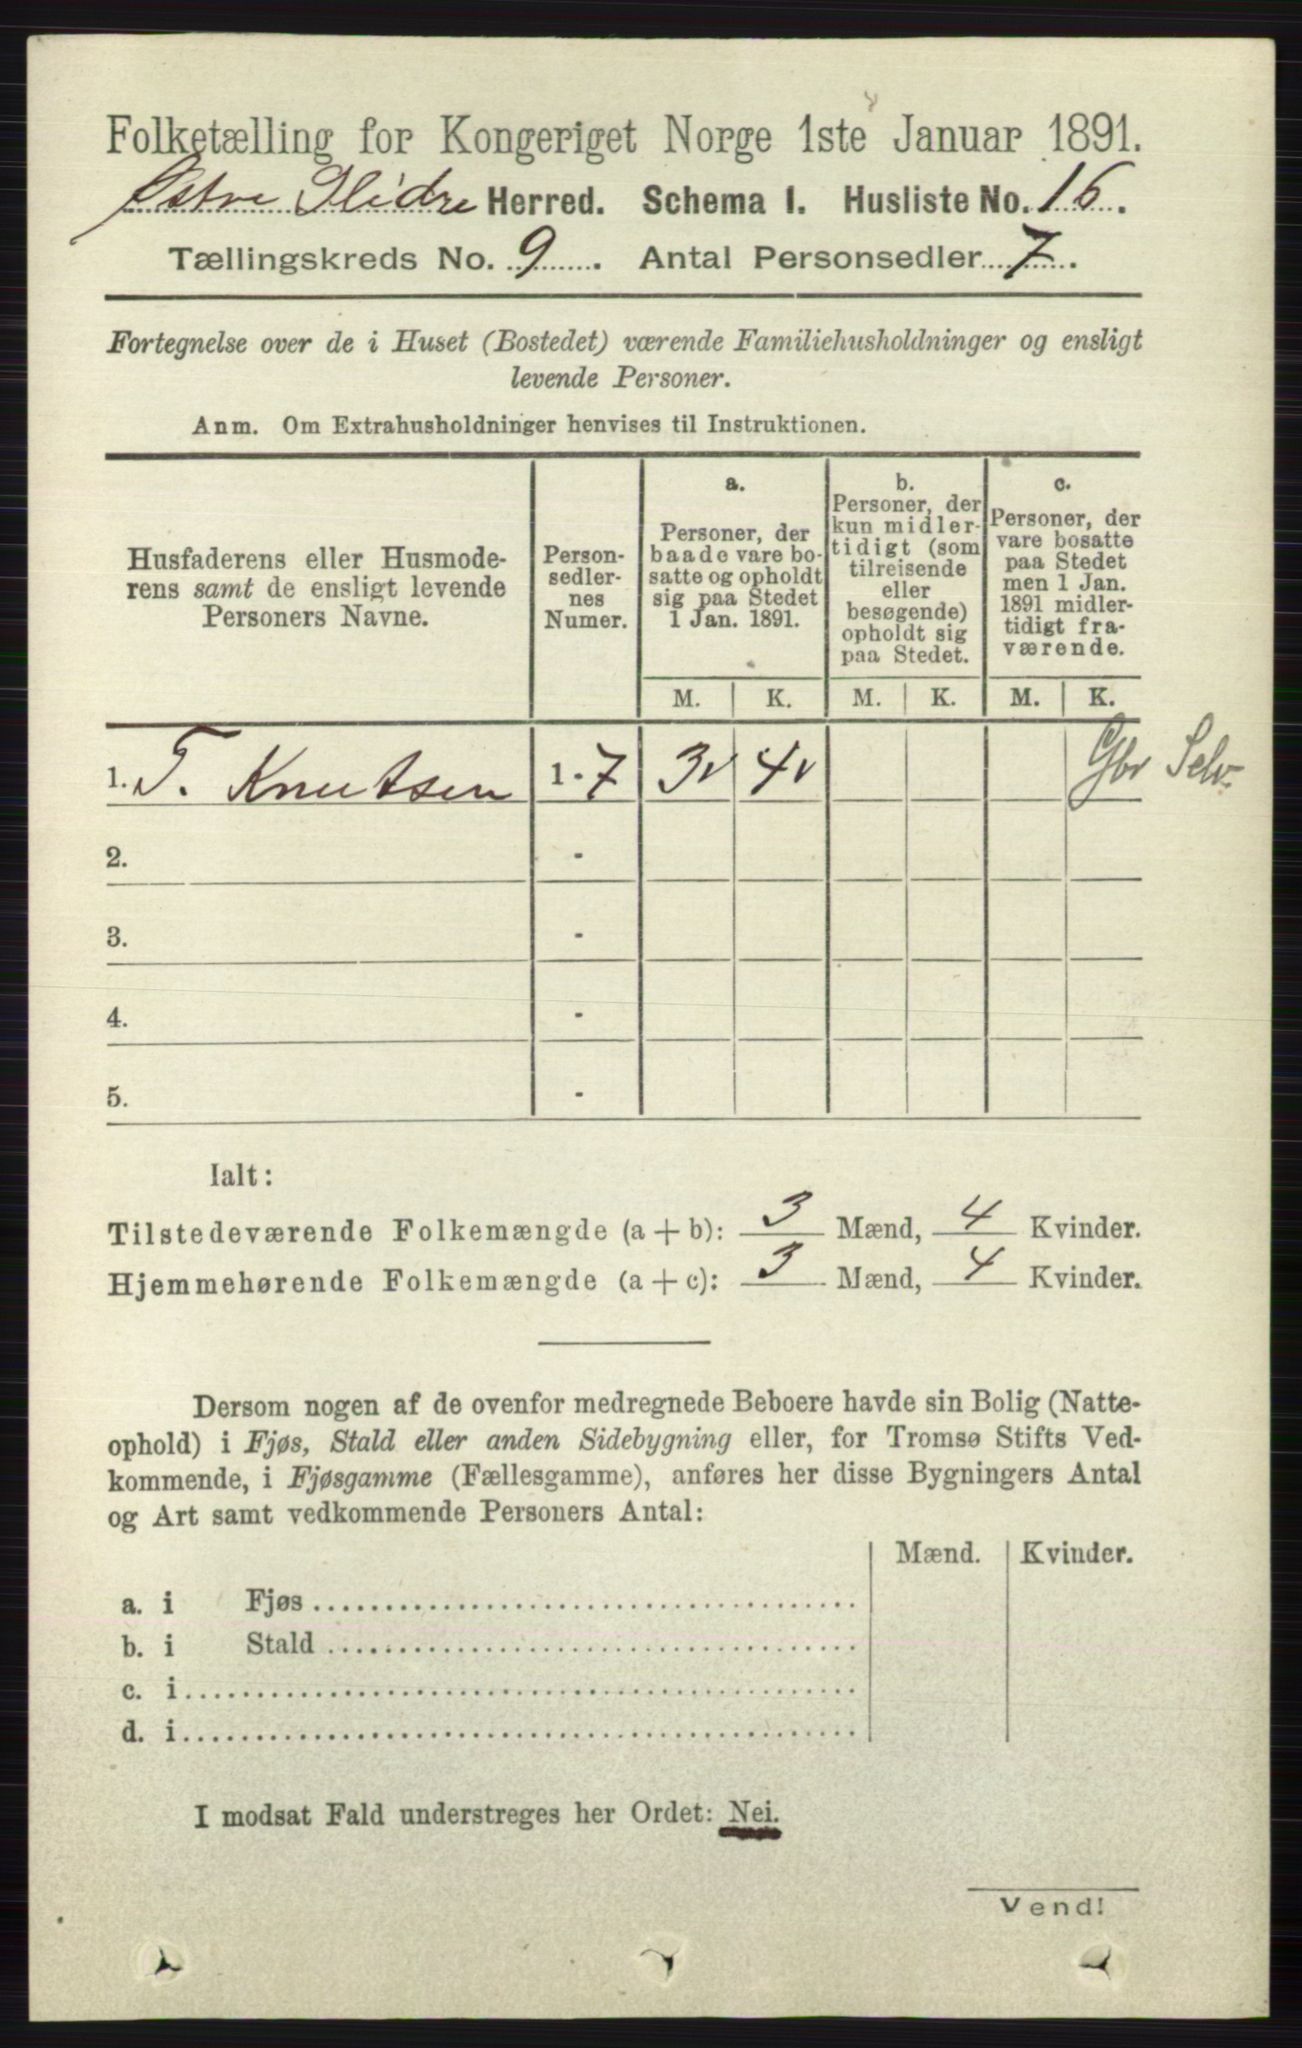 Folketælling for Kongeriget Norge 1ste Januar 1891.
Østre Slidre Herred. Schema I. Husliste No. 16.
Tællingskreds No. 9. Antal Personsedler 7.
Fortegnelse over de i Huset (Bostedet) værende Familiehusholdninger og ensligt
levende Personer.
Anm. Om Extrahusholdninger henvises til Instruktionen.
Husfaderens eller Husmode-
rens samt de ensligt levende
Personers Navne.
Person-
sedler-
nes
Numer.
a.
Personer, der
baade vare bo-
satte og opholdt
sig paa Stedet
1 Jan. 1891.
b.
Personer, der
kun midler-
tidigt (som
tilreisende
eller
besøgende)
opholdt sig
paa Stedet.
c.
Personer, der
vare bosatte
paa Stedet
men 1 Jan.
1891 midler-
tidigt fra-
værende.
M. K. M. K. M. K.
1. T. Knutsen 1 - 7 3v 4v Gbr Selv
2. -
3. -
4. -
5. -
Ialt:
Tilstedeværende Folkemængde (a + b): 3 Mænd, 4 Kvinder.
Hjemmehørende Folkemængde (a + c): 3 Mænd, 4 Kvinder.
Dersom nogen af de ovenfor medregnede Beboere havde sin Bolig (Natte-
ophold) i Fjøs, Stald eller anden Sidebygning eller, for Tromsø Stifts Ved-
kommende, i Fjøsgamme (Fællesgamme), anføres her disse Bygningers Antal
og Art samt vedkommende Personers Antal:
Mænd. Kvinder.
a. i Fjøs
b. i Stald
c. i
d. i
I modsat Fald understreges her Ordet: Nei.
Vend!